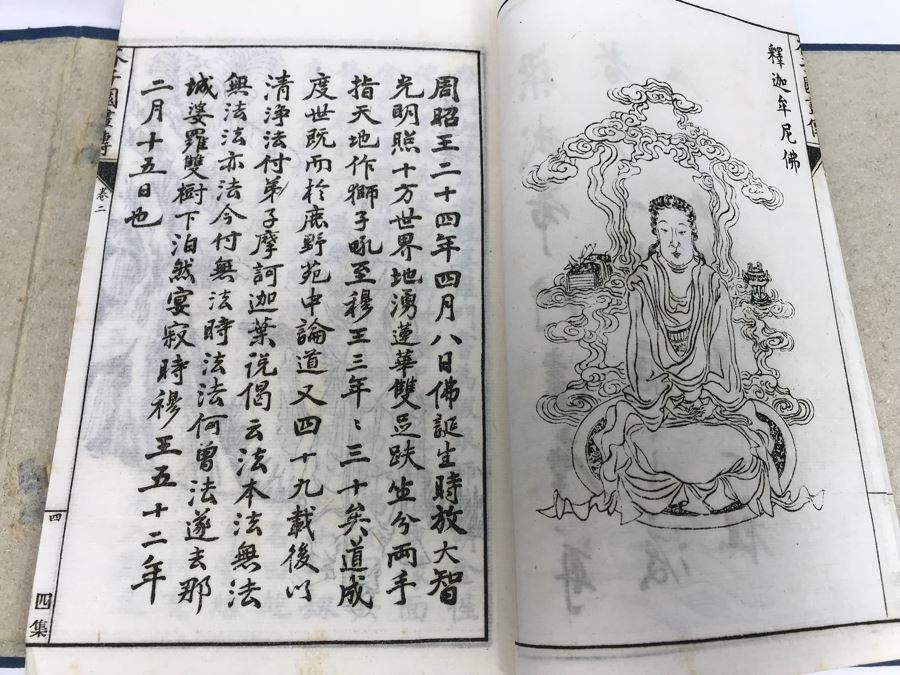 釋迦牟尼佛
周昭王二十四年四月八日佛誕生時放大智
光明照十方世界地湧蓮華雙足趺坐兮兩手
指天地作獅子吼至穆王三年〻三十矣道成
度世既而於鹿野苑中論道又四十九載後以
清淨法付弟子摩訶迦葉说偈云法本法無法
無法法亦法今付無法時法法何曾法遂去那
城婆羅雙樹下泊然宴寂時穆王五十二年
二月十五日也
卷二
四
四集